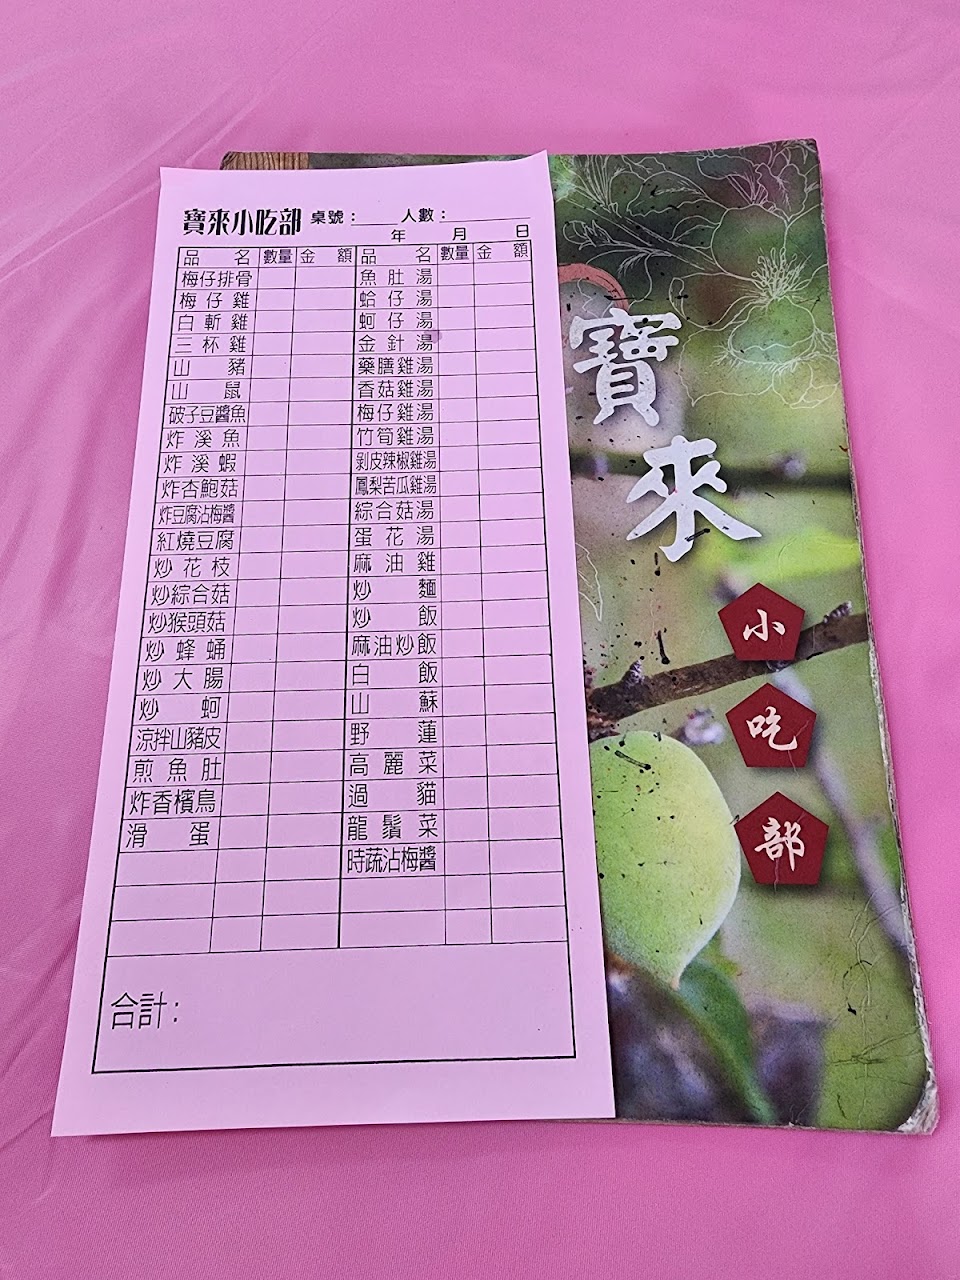 寶來小吃部 桌號： 人數：
年 月 日
品名 數量 金額 品名 數量 金額
梅仔排骨 魚肚湯
梅仔雞 蛤仔湯
白斬雞 蚵仔湯
三杯雞 金針湯
山豬 藥膳雞湯
山鼠 香菇雞湯
破子豆醬魚 梅仔雞湯
炸溪魚 竹筍雞湯
炸溪蝦 剝皮辣椒雞湯
炸杏鮑菇 鳳梨苦瓜雞湯
炸豆腐沾梅醬 綜合菇湯
紅燒豆腐 蛋花湯
炒花枝 麻油雞
炒綜合菇 炒麵
炒猴頭菇 炒飯
炒蜂蛹 麻油炒飯
炒大腸 白飯
炒蚵 山蘇
涼拌山豬皮 野蓮
煎魚肚 高麗菜
炸香檳鳥 過貓
滑蛋 龍鬚菜
時蔬沾梅醬
合計：
寶來
小吃部